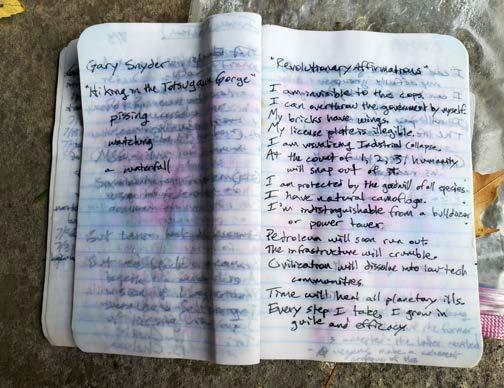 Gary Snyder
"Hiking in the Totsugawa Gorge"
pissing
watching
a waterfall
"Revolutionary Affirmations"
I am invisible to the cops.
I can overthrow the government by myself.
My bricks have wings.
My license plate is illegible.
I am visualizing Industrial Collapse.
At the count of 1, 2, 3, humanity
will snap out of it.
I am protected by the goodwill of all species.
I have natural camoflage.
I'm indistinguishable from a bulldozer
or power tower.
Petroleum will soon run out.
The infrastructure will crumble.
Civilization will dissolve into low-tech
communities.
Time will heal all planetary ills.
Every step I take, I grow in
guile and efficacy.